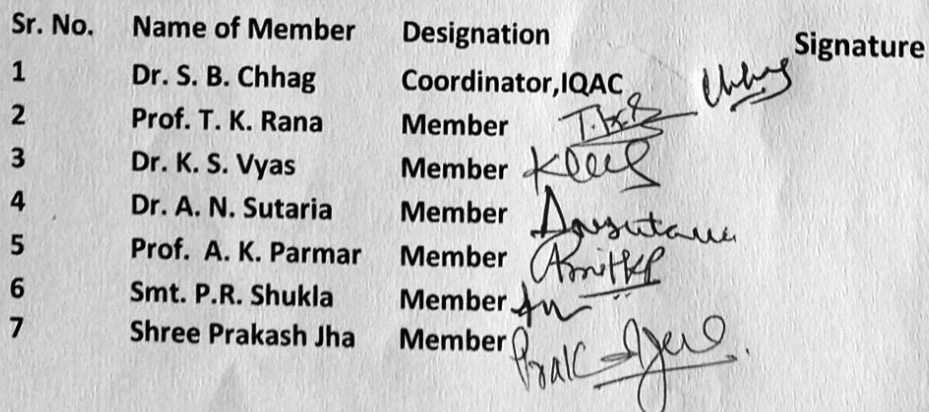 Sr. No. Name of Member Designation Signature
1 Dr. S. B. Chhag Coordinator,IQAC
2 Prof. T. K. Rana Member
3 Dr. K. S. Vyas Member
4 Dr. A. N. Sutaria Member
5 Prof. A. K. Parmar Member
6 Smt. P.R. Shukla Member
7 Shree Prakash Jha Member